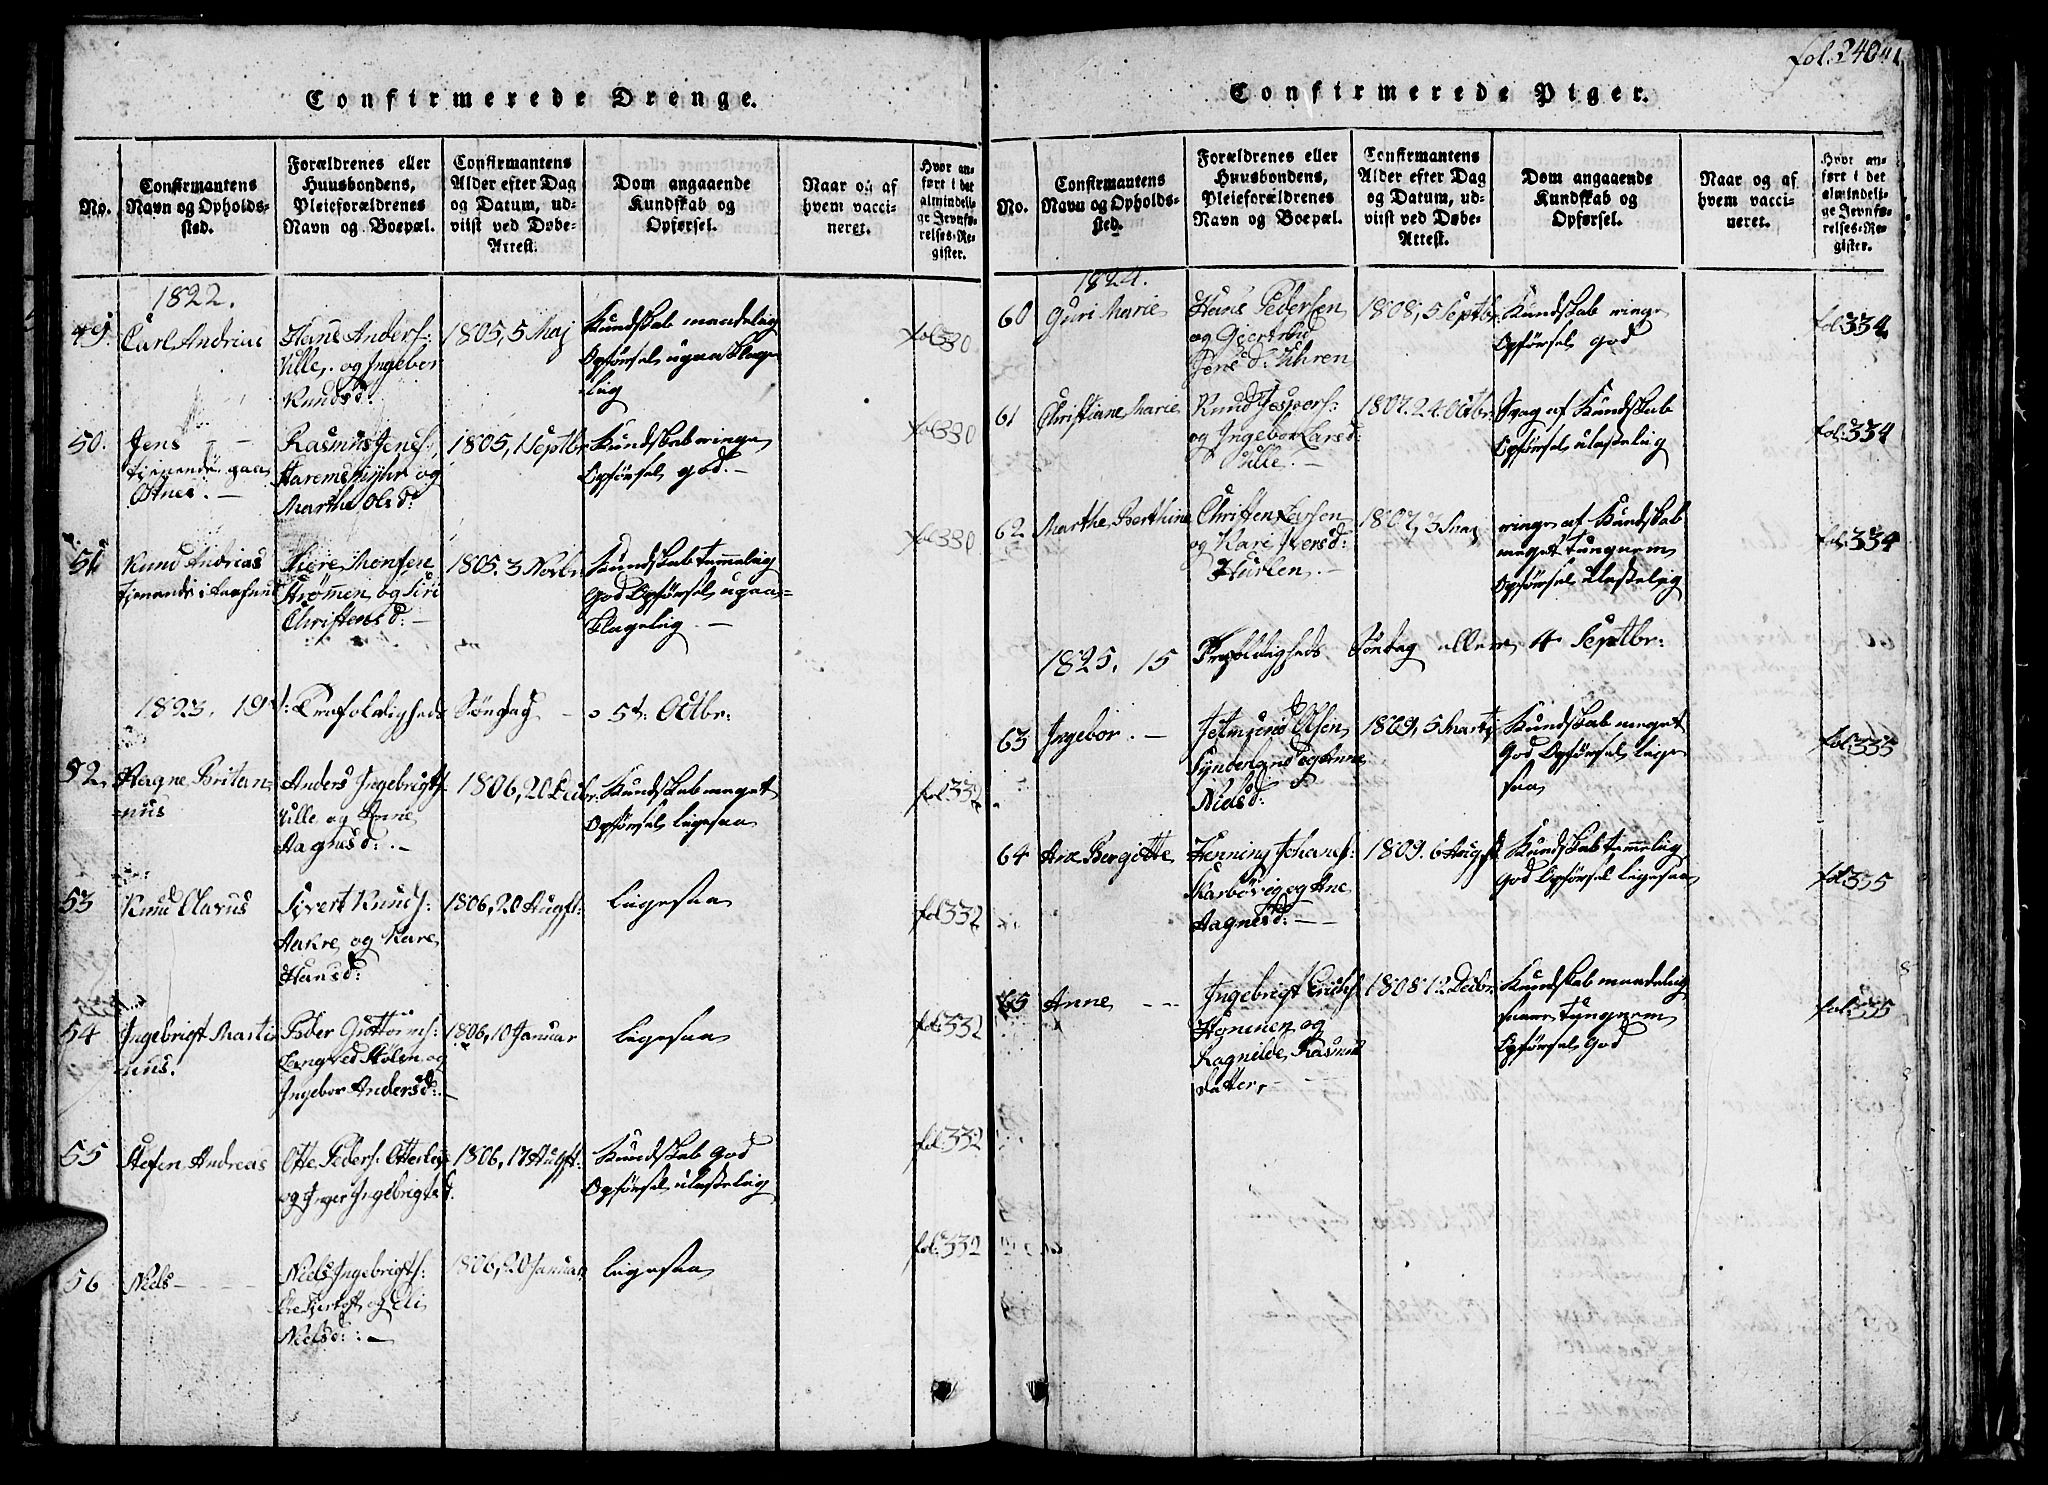 fol. 240
Confirmerede Drenge.
No.
Confirmantens
Navn og Opholds-
sted.
Forældrenes eller
Huusbondens,
Pleieforældrenes
Navn og Boepæl.
Confirmantens
Alder efter Dag
og Datum, ud-
viist ved Døbe-
Attest.
Dom angaaende
Kundskab og
Opførsel.
Naar og af
hvem vacci-
neret.
Hvor an-
ført i det
almindeli-
ge Jevnfø-
relses-Re-
gister.
1822.
49.
Carl Andreas
Hans Anders:
Ulle, og Ingebor
Knudsd:
1805, 5 Maj
Kundskab maadelig
Opførsel upaaklage
lig
fol 330
50.
Jens
tjenende paa
Østnes.
Rasmus Jens:
Haremsmyhr og
Marthe Olsd:
1805, 1 Septbr
Kundskab ringe
Opførsel god.
fol 330
51
Knud Andreas
tjenende i Aarsund
Tiøre Monsen
Strømmen og Siri
Christensd:
1805. 3 Novbr
Kundskab temmelig
god Opførsel upaa=
klagelig
fol 330
1823, 19d: Trefoldigheds Søndag 5d: Octbr:
52.
Hagne Britan-
nus
Anders Ingebrigts
Ulle og Anne
Aagesd:
1806, 20 Decbr:
Kundskab meget
Opførsel ligesaa
fol 332
53
Knud Olavus
Sivert Knuds:
Aakre og Kare
Hansd:
1806, 20 Augst:
ligesaa
fol 332
54
Ingebrigt Marti
nus.
Peder Guttorms:
Langved Stølen og
Ingebor Andersd:
1806, 10 Januar
ligesaa
fol 332
55
Stefen Andreas
Otte Peders: Otterlei
og Inger Ingebrigtsd.
1806, 17 Augst:
Kundskab god
Opførsel ulastelig
fol 332
56
Niels
Niels Ingebrigts:
Fjertoft og Eli
Nielsd:
1806, 20 Januar
ligesaa
fol. 332
Confirmerede Piger.
No.
Confirmantens
Navn og Opholds-
sted.
Forældrenes eller
Huusbondens,
Pleieforældrenes
Navn og Boepæl.
Confirmantens
Alder efter Dag
og Datum, ud-
viist ved Døbe-
Attest.
Dom angaaende
Kundskab og
Opførsel.
Naar og af
hvem vacci-
neret.
Hvor an-
ført i det
almindeli-
ge Jevnfø-
relses-Re-
gister.
1824.
60
Guri Marie
Hans Pedersen
og Giertrud
Jensd: Uhren
1808, 5 Septbr
Kundskab ringe
Opførsel god
fol 334
61
Christiane Marie
Knud Jespers:
og Ingebor Larsd:
Ulle.
1807. 24 Octbr:
Svag af Kundskab
Opførsel ulastelig
fol: 334
62
Marthe Berthine
Christen Larsen
og Kari Iversd:
Huslen.
1807, 3 Maj
ringe af Kundskab
meget tungnem
Opførsel ulastelig
fol: 334
1825, 15 Trefoldigheds Søndag eller 4 Septbr:
63
Ingebor.
Jetmund Olsen
Synderland og Anne
Nielsd:
1809, 5 Marts
Kundskab meget
god Opførsel lige
saa
fol 335
64
Ane Bergitte
Henning Johans:
Skarbøvig og Ane
Aagnesd:
1809. 6 Augst
Kundskab temmelig
god Opførsel ligesaa
fol 335
65
Anne
Ingebrigt Erichs
og
Ragnilde Rasmus
datter,
1808 12 Decbr:
Kundskab maadelig
svær tungnem
Opførsel god
fol: 335